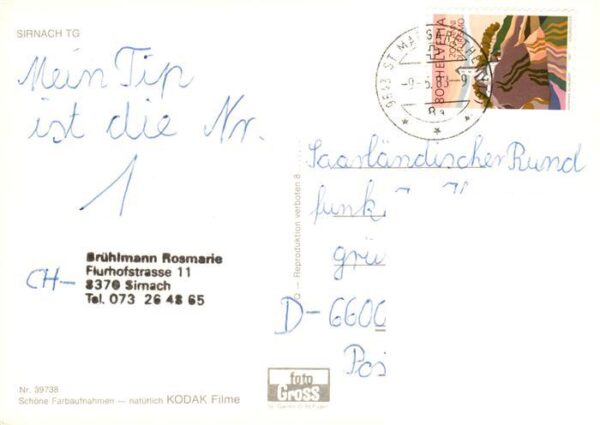 SIRNACH TG
Mein Tip
ist die Nr.
1
Brühlmann Rosmarie
Flurhofstrasse 11
8370 Sirnach
Tel. 073 26 48 65
CH-
Nr. 39738
Schöne Farbaufnahmen — natürlich KODAK Filme
Reproduktion verboten
foto
Gross
80 HELVETIA
Saarländischer Rund
funk
grüe
D-6600
Pos